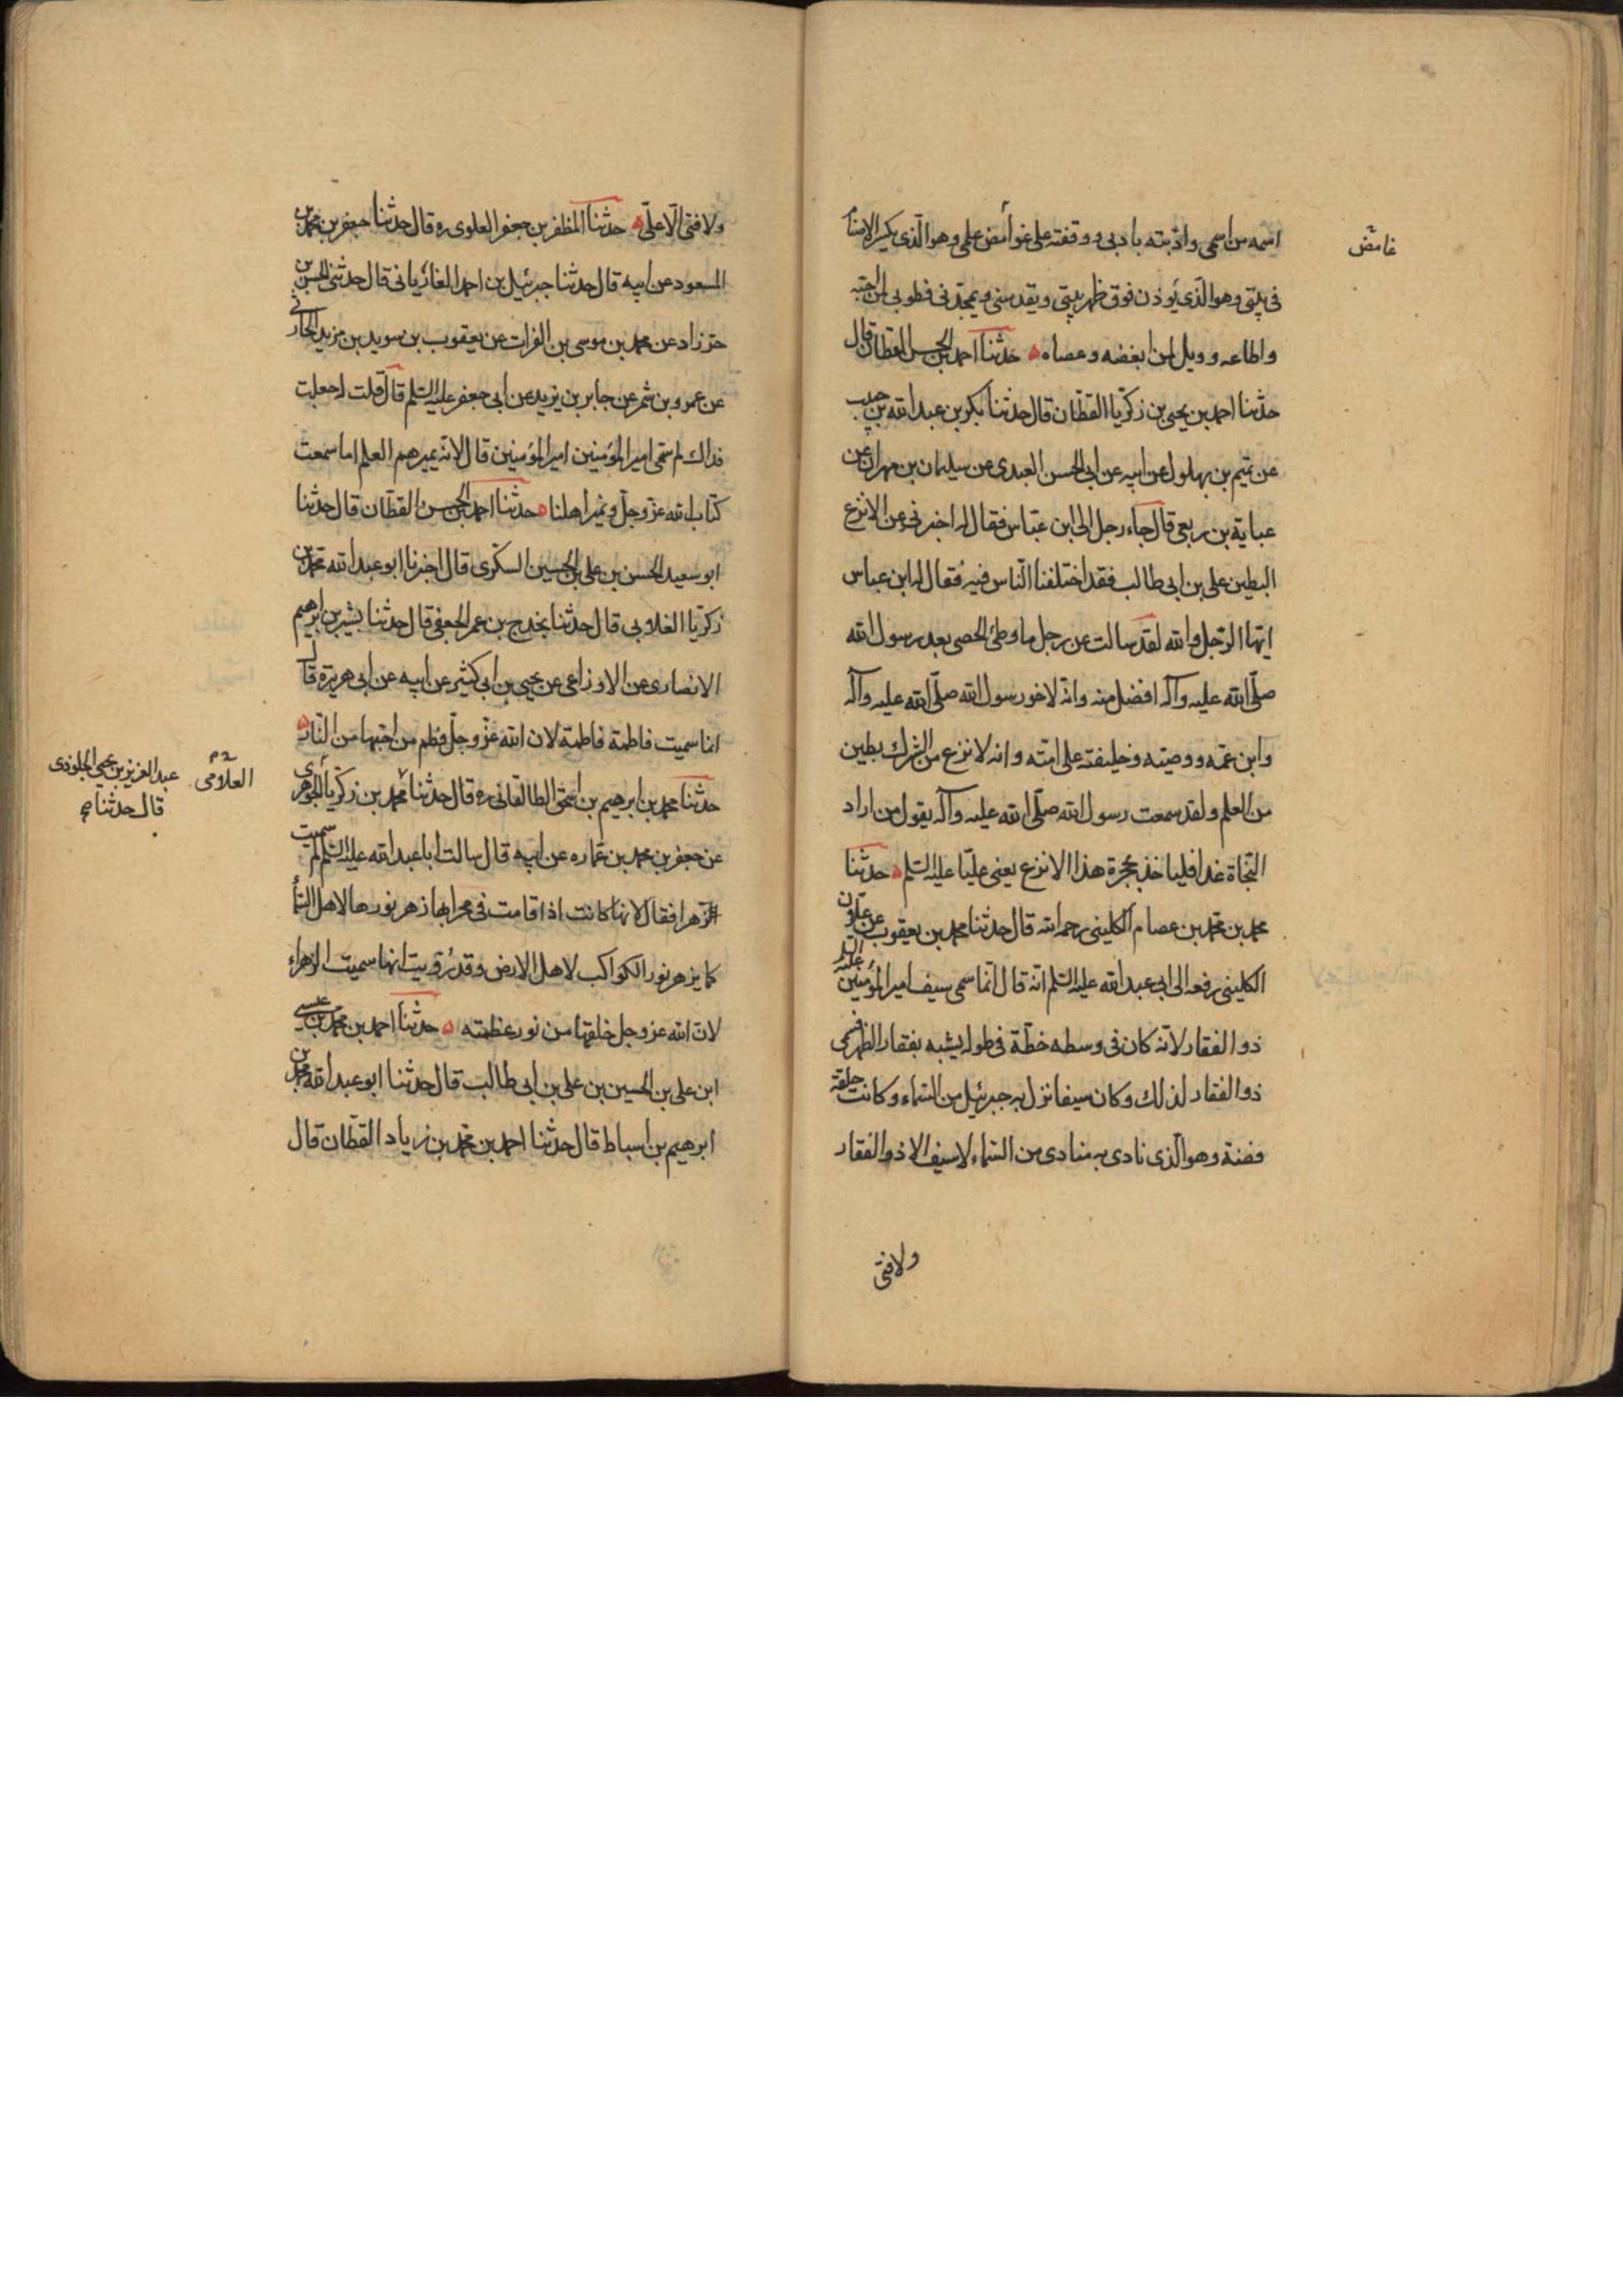 اسمه من اسمي وادبته بادبي ووقفته على غوامض علمي وهو الذي يكسر الاصنام
في بيتي وهو الذي يؤذن فوق ظهر بيتي ويقدسني ويمجدني فطوبى لمن احبه
واطاعه وويل لمن ابغضه وعصاه ه حدثنا احمد بن الحسن القطان قال
حدثنا احمد بن يحيى بن زكريا القطان قال حدثنا بكر بن عبد الله بن حبيب
عن تميم بن بهلول عن ابيه عن ابي الحسن العبدى عن سليمان بن مهران عن
عباية بن ربعى قال جاء رجل الى ابن عباس فقال له اخبرني عن الانزع
البطين على بن ابى طالب فقد اختلفنا الناس فيه فقال له ابن عباس
ايها الرجل والله لقد سالت عن رجل ما وطئ الحصى بعد رسول الله
صلى الله عليه وآله افضل منه وانه لاخو رسول الله صلى الله عليه وآله
وابن عمه ووصيه وخليفته على امته وانه لانزع من الشرك بطين
من العلم ولقد سمعت رسول الله صلى الله عليه وآله يقول من اراد
النجاة غدا فلياخذ بحجزة هذا الانزع يعنى عليا عليه السلم ه حدثنا
محمد بن محمد بن عصام الكلينى رحمه الله قال حدثنا محمد بن يعقوب عن علان
الكلينى رفعه الى ابى عبد الله عليه السلم انه قال انما سمى سيف امير المؤمنين عليه السلم
ذو الفقار لانه كان فى وسطه خطة فى طوله يشبه بفقار الظهر فسمى
ذو الفقار لذلك وكان سيفا نزل به جبرئيل من السماء وكانت حلقته
فضة وهو الذى نادى به منادى من السماء لا سيف الا ذو الفقار
ولا فتى
غامض
ولا فتى الا على ه حدثنا المظفر بن جعفر العلوى ره قال حدثنا جعفر بن محمد بن
المسعود عن ابيه قال حدثنا جبرئيل بن احمد الفاريانى قال حدثنى الحسن بن
خرزاد عن محمد بن موسى بن الفرات عن يعقوب بن سويد بن مزيد الحارثى
عن عمرو بن شمر عن جابر بن يزيد عن ابى جعفر عليه السلم قال قلت له جعلت
فداك لم سمى امير المؤمنين امير المؤمنين قال لانه يميرهم العلم اما سمعت
كتاب الله عز وجل ونمير اهلنا ه حدثنا احمد بن الحسن القطان قال حدثنا
ابو سعيد الحسن بن على بن الحسين السكرى قال اخبرنا ابو عبد الله محمد بن
زكريا الغلابى قال حدثنا بخدج بن عمر الحنفى قال حدثنا بشير بن ابرهيم
الانصارى عن الاوزاعى عن يحيى بن ابى كثير عن ابيه عن ابى هريرة قال
انما سميت فاطمة فاطمة لان الله عز وجل فطم من احبها من النار ه
حدثنا محمد بن ابرهيم بن اسحق الطالقانى ره قال حدثنا محمد بن زكريا الجوهرى
عن جعفر بن محمد بن عماره عن ابيه قال سالت ابا عبد الله عليه السلم لم سميت
الزهرا فقال لانها كانت اذا قامت فى محرابها زهر نورها لاهل السماء
كما يزهر نور الكواكب لاهل الارض وقد رويت انها سميت الزهراء
لان الله عز وجل خلقها من نور عظمته ه حدثنا احمد بن محمد بن عيسى
ابن على بن الحسين بن على بن ابى طالب قال حدثنا ابو عبد الله محمد بن
ابرهيم بن اسباط قال حدثنا احمد بن محمد بن زياد القطان قال
عبد العزيز بن يحيى الجلودى
قال حدثنا صح